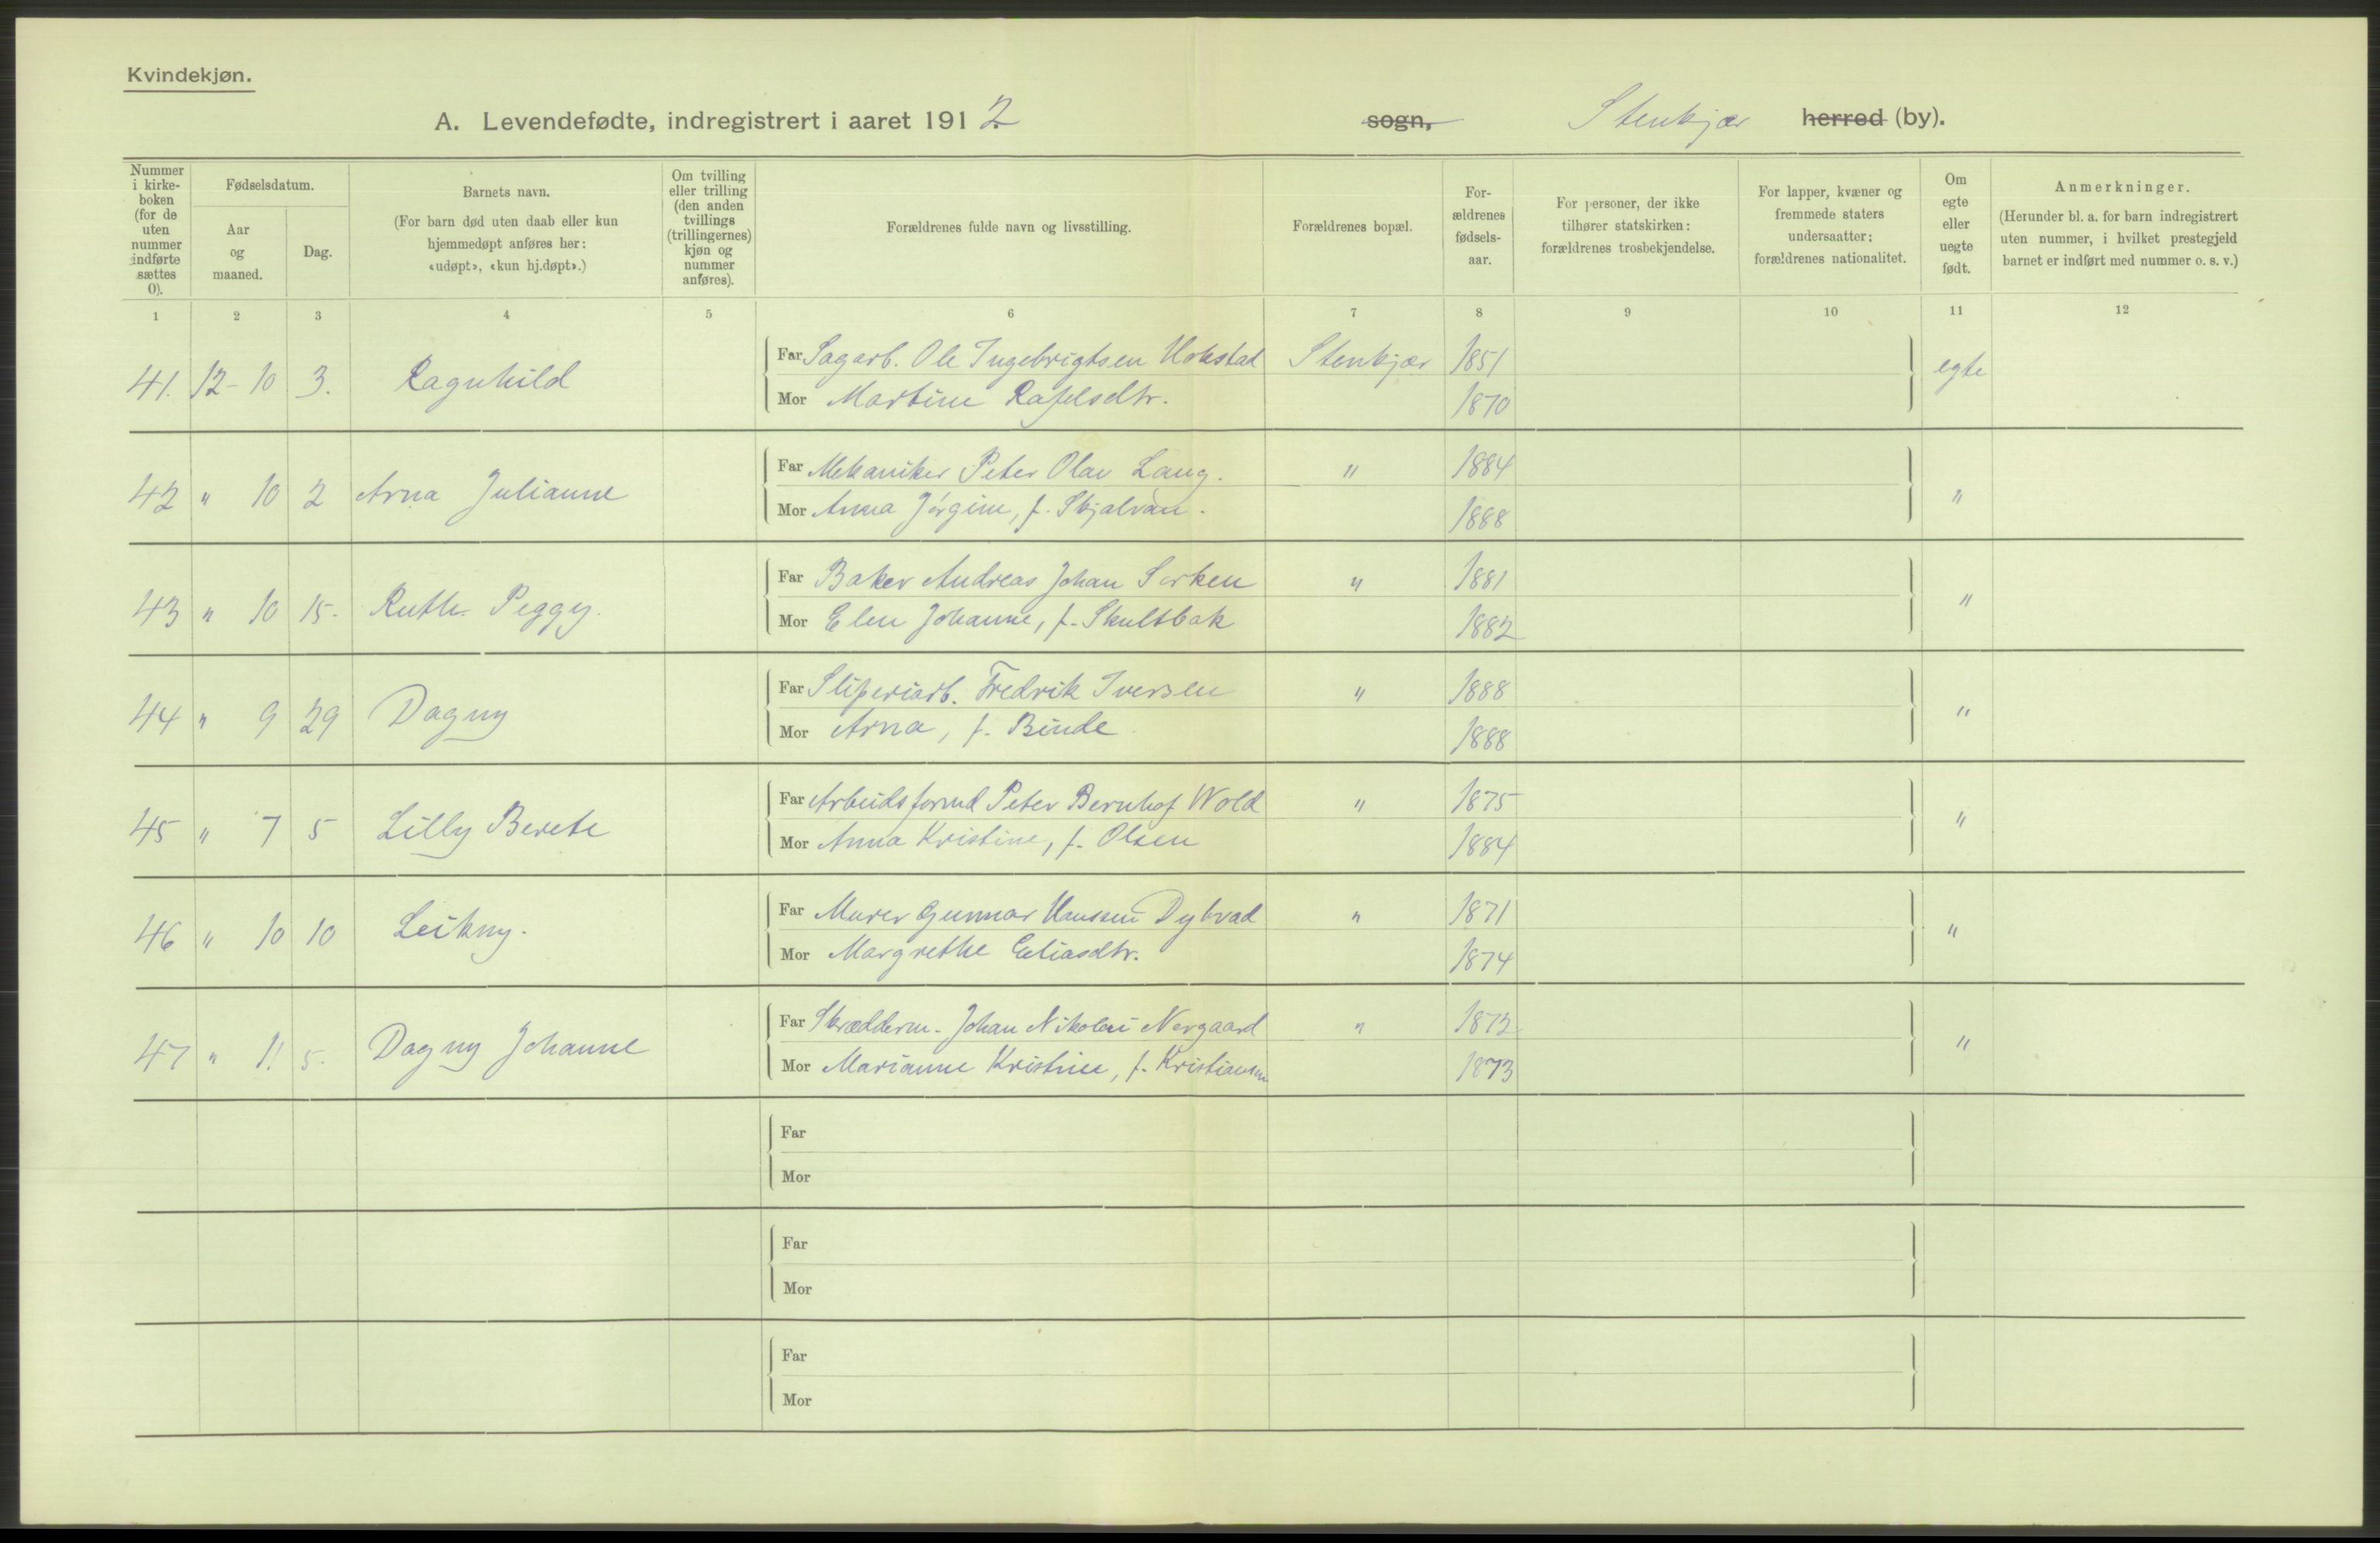 Kvindekjøn.
A. Levendefødte, indregistrert i aaret 1912. sogn, Stenkjær herred (by).
Nummer i kirke-boken (for de uten nummer indførte sættes 0).
Fødselsdatum.
Aar og maaned.
Dag.
Barnets navn.
(For barn død uten daab eller kun hjemmedøpt anføres her: «udøpt», «kun hj.døpt».)
Om tvilling eller trilling (den anden tvillings (trillingernes) kjøn og nummer anføres).
Forældrenes fulde navn og livsstilling.
Forældrenes bopæl.
For-ældrenes fødsels-aar.
For personer, der ikke tilhører statskirken: forældrenes trosbekjendelse.
For lapper, kvæner og fremmede staters undersaatter: forældrenes nationalitet.
Om egte eller uegte født.
Anmerkninger.
(Herunder bl. a. for barn indregistrert uten nummer, i hvilket prestegjeld barnet er indført med nummer o. s. v.)
1 2 3 4 5 6 7 8 9 10 11 12
41. 12-10 3. Ragnhild Far Sagarb. Ole Ingebrigtsen Hokstad Stenkjær 1851 egte
Mor Martine Rafelsdtr. 1870
42 " 10 2 Arna Julianne Far Mekaniker Peter Olav Lang. " 1884 "
Mor Anna Jørgine, f. Skjalvan. 1888
43 " 10 15. Ruth Peggy. Far Baker Andreas Johan Sorken " 1881 "
Mor Elen Johanne, f. Skultbak 1882
44 " 9 29 Dagny Far Sliperiarb. Fredrik Iversen " 1888 "
Mor Arna, f. Binde 1888
45 " 7 5 Lilly Berete Far Arbeidsformd Peter Bernhof Wold " 1875 "
Mor Anna Kristine, f. Olsen 1884
46 " 10 10 Leikny. Far Murer Gunnar Hanssen Dybvad " 1871 "
Mor Margrethe Eliasdtr. 1874
47 " 11 5. Dagny Johanne Far Skrædderm. Johan Nikolai Norgaard " 1872 "
Mor Marianne Kristine, f. Kristiansen 1873
Far
Mor
Far
Mor
Far
Mor